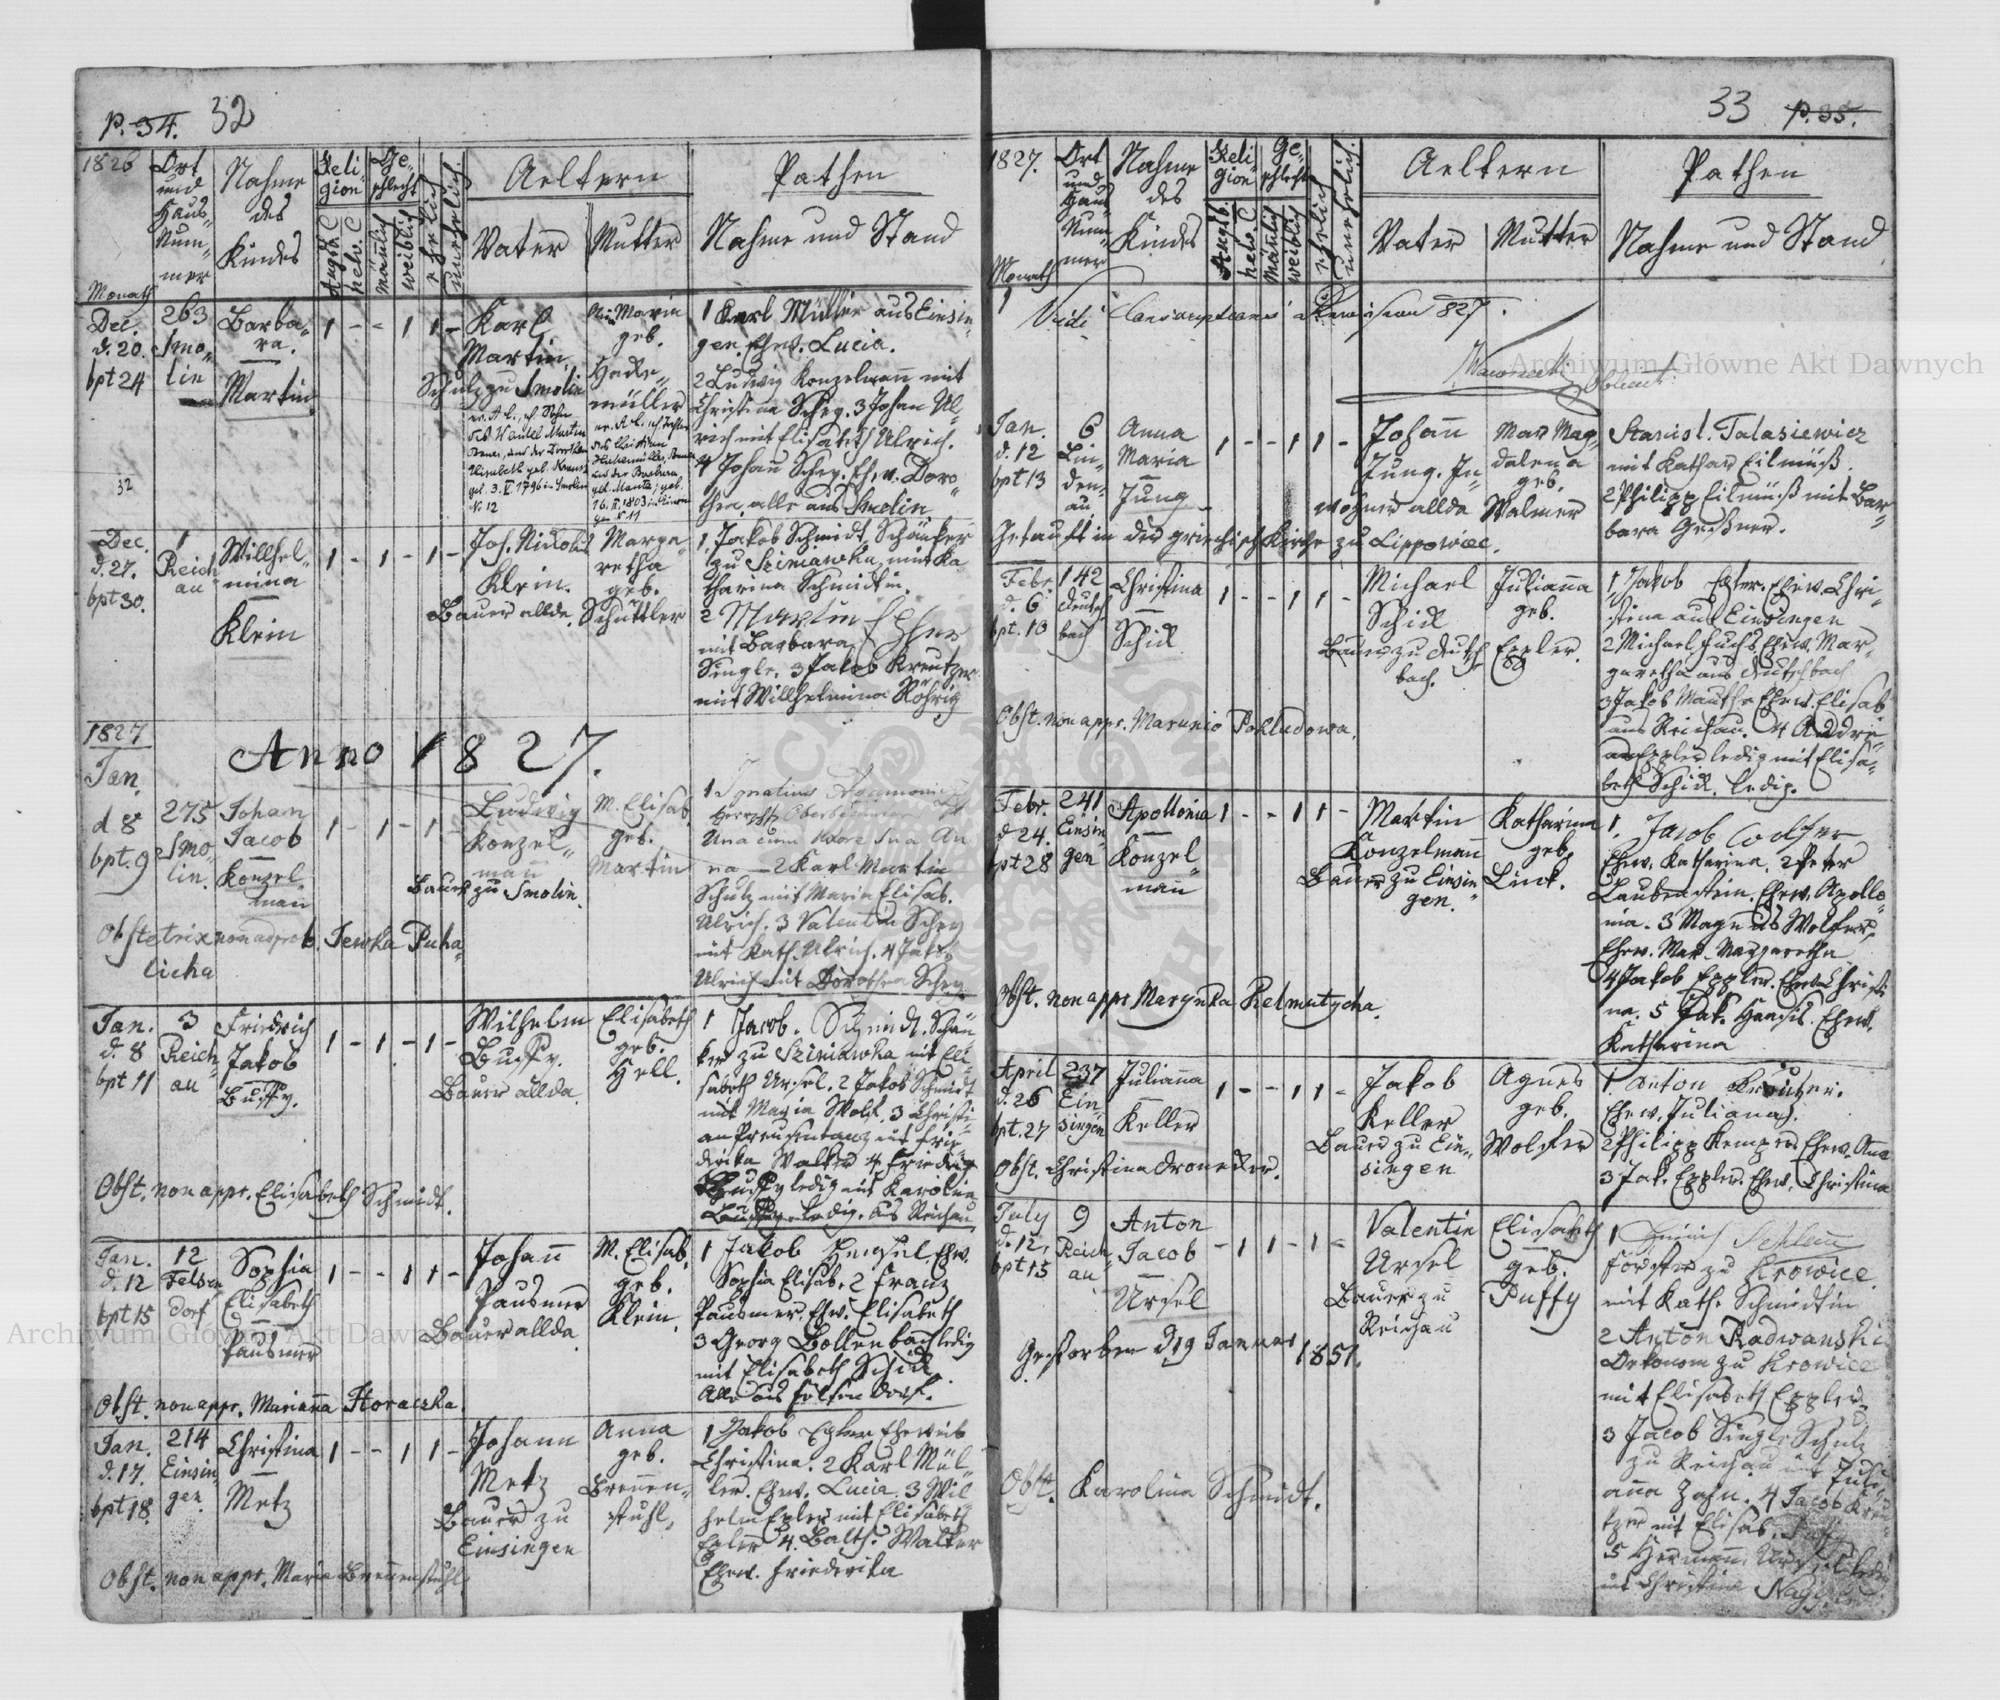 p. 34. 32
1826
Ort und Haus-Nummer
Nahme des Kindes
Religion
Augsb. C
helv. C
Geschlecht
mänlich
weiblich
ehelich
unehelich
Aeltern
Vater
Mutter
Pathen
Nahme und Stand
Monath
Dec.
d. 20.
bpt 24
263
Smo-
lin
Barba-
ra.
Martin
1 - - 1 1 -
Karl
Martin,
Schulz zu Smolin
Maria
geb.
Hade-
müller
1 Karl Müller aus Einsin-
gen. Ehew. Lucia.
2 Ludwig Konzelmann mit
Christina Scheg. 3 Johan Ul-
rich mit Elisabeth Ulrich.
4 Johann Scheg. Ehew. Doro-
thea, alle aus Smolin
32
Dec.
d. 27.
bpt 30.
1
Reich-
au
Willhel-
mina
Klein
1 - 1 - 1 -
Joh. Nickol
Klein.
Bauer allda.
Marga-
retha
geb.
Schüttler
1. Jakob Schmidt, Schänker
zu Szeniawka, mit Ka-
tharina Schmidtin.
2 Martin Epler
mit Barbara
Single. 3 Jakob Kreutzer
mit Willhelmina Röhrig
1827
Anno 1827.
Jan.
d 8
bpt. 9
275
Smo-
lin.
Johan
Jacob
Konzel-
man
1 - 1 - 1 -
Ludwig
Konzel-
man
Bauer zu Smolin.
M. Elisab.
geb.
Martin
1 Ignatius
Una cum Uxore Sua An
na — 2 Karl Martin
Schulz mit Maria Elisab.
Ulrich. 3 Valentin Scheg
mit Kath. Ulrich. 4 Jakob
Ulrich mit Dorothea Scheg.
Obstetrix non approb. Tewka Puha-
licha
Jan.
d. 8
bpt 11
3
Reich-
au
Friedrich
Jakob
Buffy.
1 - 1 - 1 -
Wilhelm
Buffy.
Bauer allda.
Elisabeth
geb.
Hell.
1 Jacob. Schmidt. Schän
ker zu Szeniawka mit Eli-
sabeth Ursel. 2 Jakob Schmidt
mit Maria Wolf. 3 Christi-
an Preusentanz mit Frie-
derika Walker 4 Friedrich
Buffy ledig mit Karolina
Buffy ledig. aus Reichau
Obst. non appr. Elisabeth Schmidt.
Jan.
d. 12
bpt 15
12
Felsen
dorf
Sophia
Elisabeth
Pausmer
1 - - 1 1 -
Johann
Pausmer
Bauer allda
M. Elisab.
geb.
Klein.
1 Jakob Hensel, Ehw.
Sophia Elisab. 2 Franz
Pausmer. Ehw. Elisabeth
3 Georg Bollenbach ledig
mit Elisabeth Schick.
Alle aus Felsendorf.
Obst. non appr. Marianna Horaczka.
Jan.
d. 17.
bpt 18.
214
Einsin-
gen.
Christina
Metz
1 - - 1 1 -
Johann
Metz
Bauer zu
Einsingen
Anna
geb.
Brennen-
stuhl,
1 Jakob Epler Eheweib
Christina. 2 Karl Mül-
ler. Ehew. Lucia. 3 Wil-
helm Epler mit Elisabeth
Epler 4. Balth. Walker
Ehew. Friederika
Obst. non appr. Maria Brennenstuhl.
33 p. 35.
1827.
Ort und Haus-Nummer
Nahme des Kindes
Religion
Augsb.
helv. C.
Geschlecht
mänlich
weiblich
ehelich
unehelich
Aeltern
Vater
Mutter
Pathen
Nahme und Stand
Monath
Vidi 827.
Jan.
d. 12
bpt 13
6
Lin-
den-
au
Anna
Maria
Jung
1 - - 1 1 -
Johann
Jung. In-
wohner allda
Mar Mag-
dalena
geb.
Walmer
Stanisl. Talasiewicz
mit Kathar Eilmüß.
2 Philipp Eilmüß mit Bar-
bara Geßner.
Getauft in der griechisch Kirche zu Lippowiec.
Febr.
d. 6
bpt. 10
142
Deutsch
bach
Christina
Schick
1 - - 1 1 -
Michael
Schick
Bauer zu Deutsch
bach.
Julianna
geb.
Eppler.
1, Jakob Epler. Ehew. Chri-
stina aus Einsingen
2 Michael Fuchs Ehew. Mar-
garetha aus Deutschbach
3 Jakob Mauthe Ehew. Elisab
aus Reichau. 4 Andre-
as Eppler ledig mit Elisa-
beth Schick. ledig.
Obst. non appr. Marunio Pokludowa.
Febr.
d 24.
bpt 28
241
Einsin
gen
Apollonia
Konzel-
man
1 - - 1 1 -
Martin
Konzelmann
Bauer zu Einsin
gen.
Katharina
geb.
Linck.
1. Jacob
Ehew. Katharina. 2 Peter
Laubenstein. Ehew. Apollo-
nia. 3 Magnus Wolfer,
Ehew. Mar. Margaretha
4 Jakob Eppler. Ehew. Christi
na. 5 Jak. Haasis. Ehew.
Katharina
Obst. non appr Marynka Helmutycha.
April
d. 26
bpt. 27
237
Ein-
singen
Julianna
Keller
1 - - 1 1 -
Jakob
Keller
Bauer zu Ein-
singen
Agnes
geb.
Wolfer
1. Anton Kreutzer.
Ehew. Juliana.
2 Philipp Kemper Ehew. Ana
3 Jak. Eppler. Ehew. Christina
Obst. Christina Dronecker.
July
d. 12,
bpt 15
9
Reich-
au
Anton
Jacob
Ursel
- 1 1 - 1 -
Valentin
Ursel
Bauer zu
Reichau
Elisabeth
geb.
Puffy
1
Förster zu Krowice.
mit Kath. Schmidtin
2 Anton Radwanski
Oekonom zu Krowice
mit Elisabeth Eppler.
3 Jacob Single Schulz
zu Reichau mit Juli-
anna Zahn. 4 Jacob Kreu-
tzer mit Elisab. Puffy
5 Hermann Ursel ledig
mit Christina
Gestorben d 19 Januar 1851.
Obst. Karolina Schmidt.
Archiwum Główne Akt Dawnych
Archiwum Główne Akt Dawnych